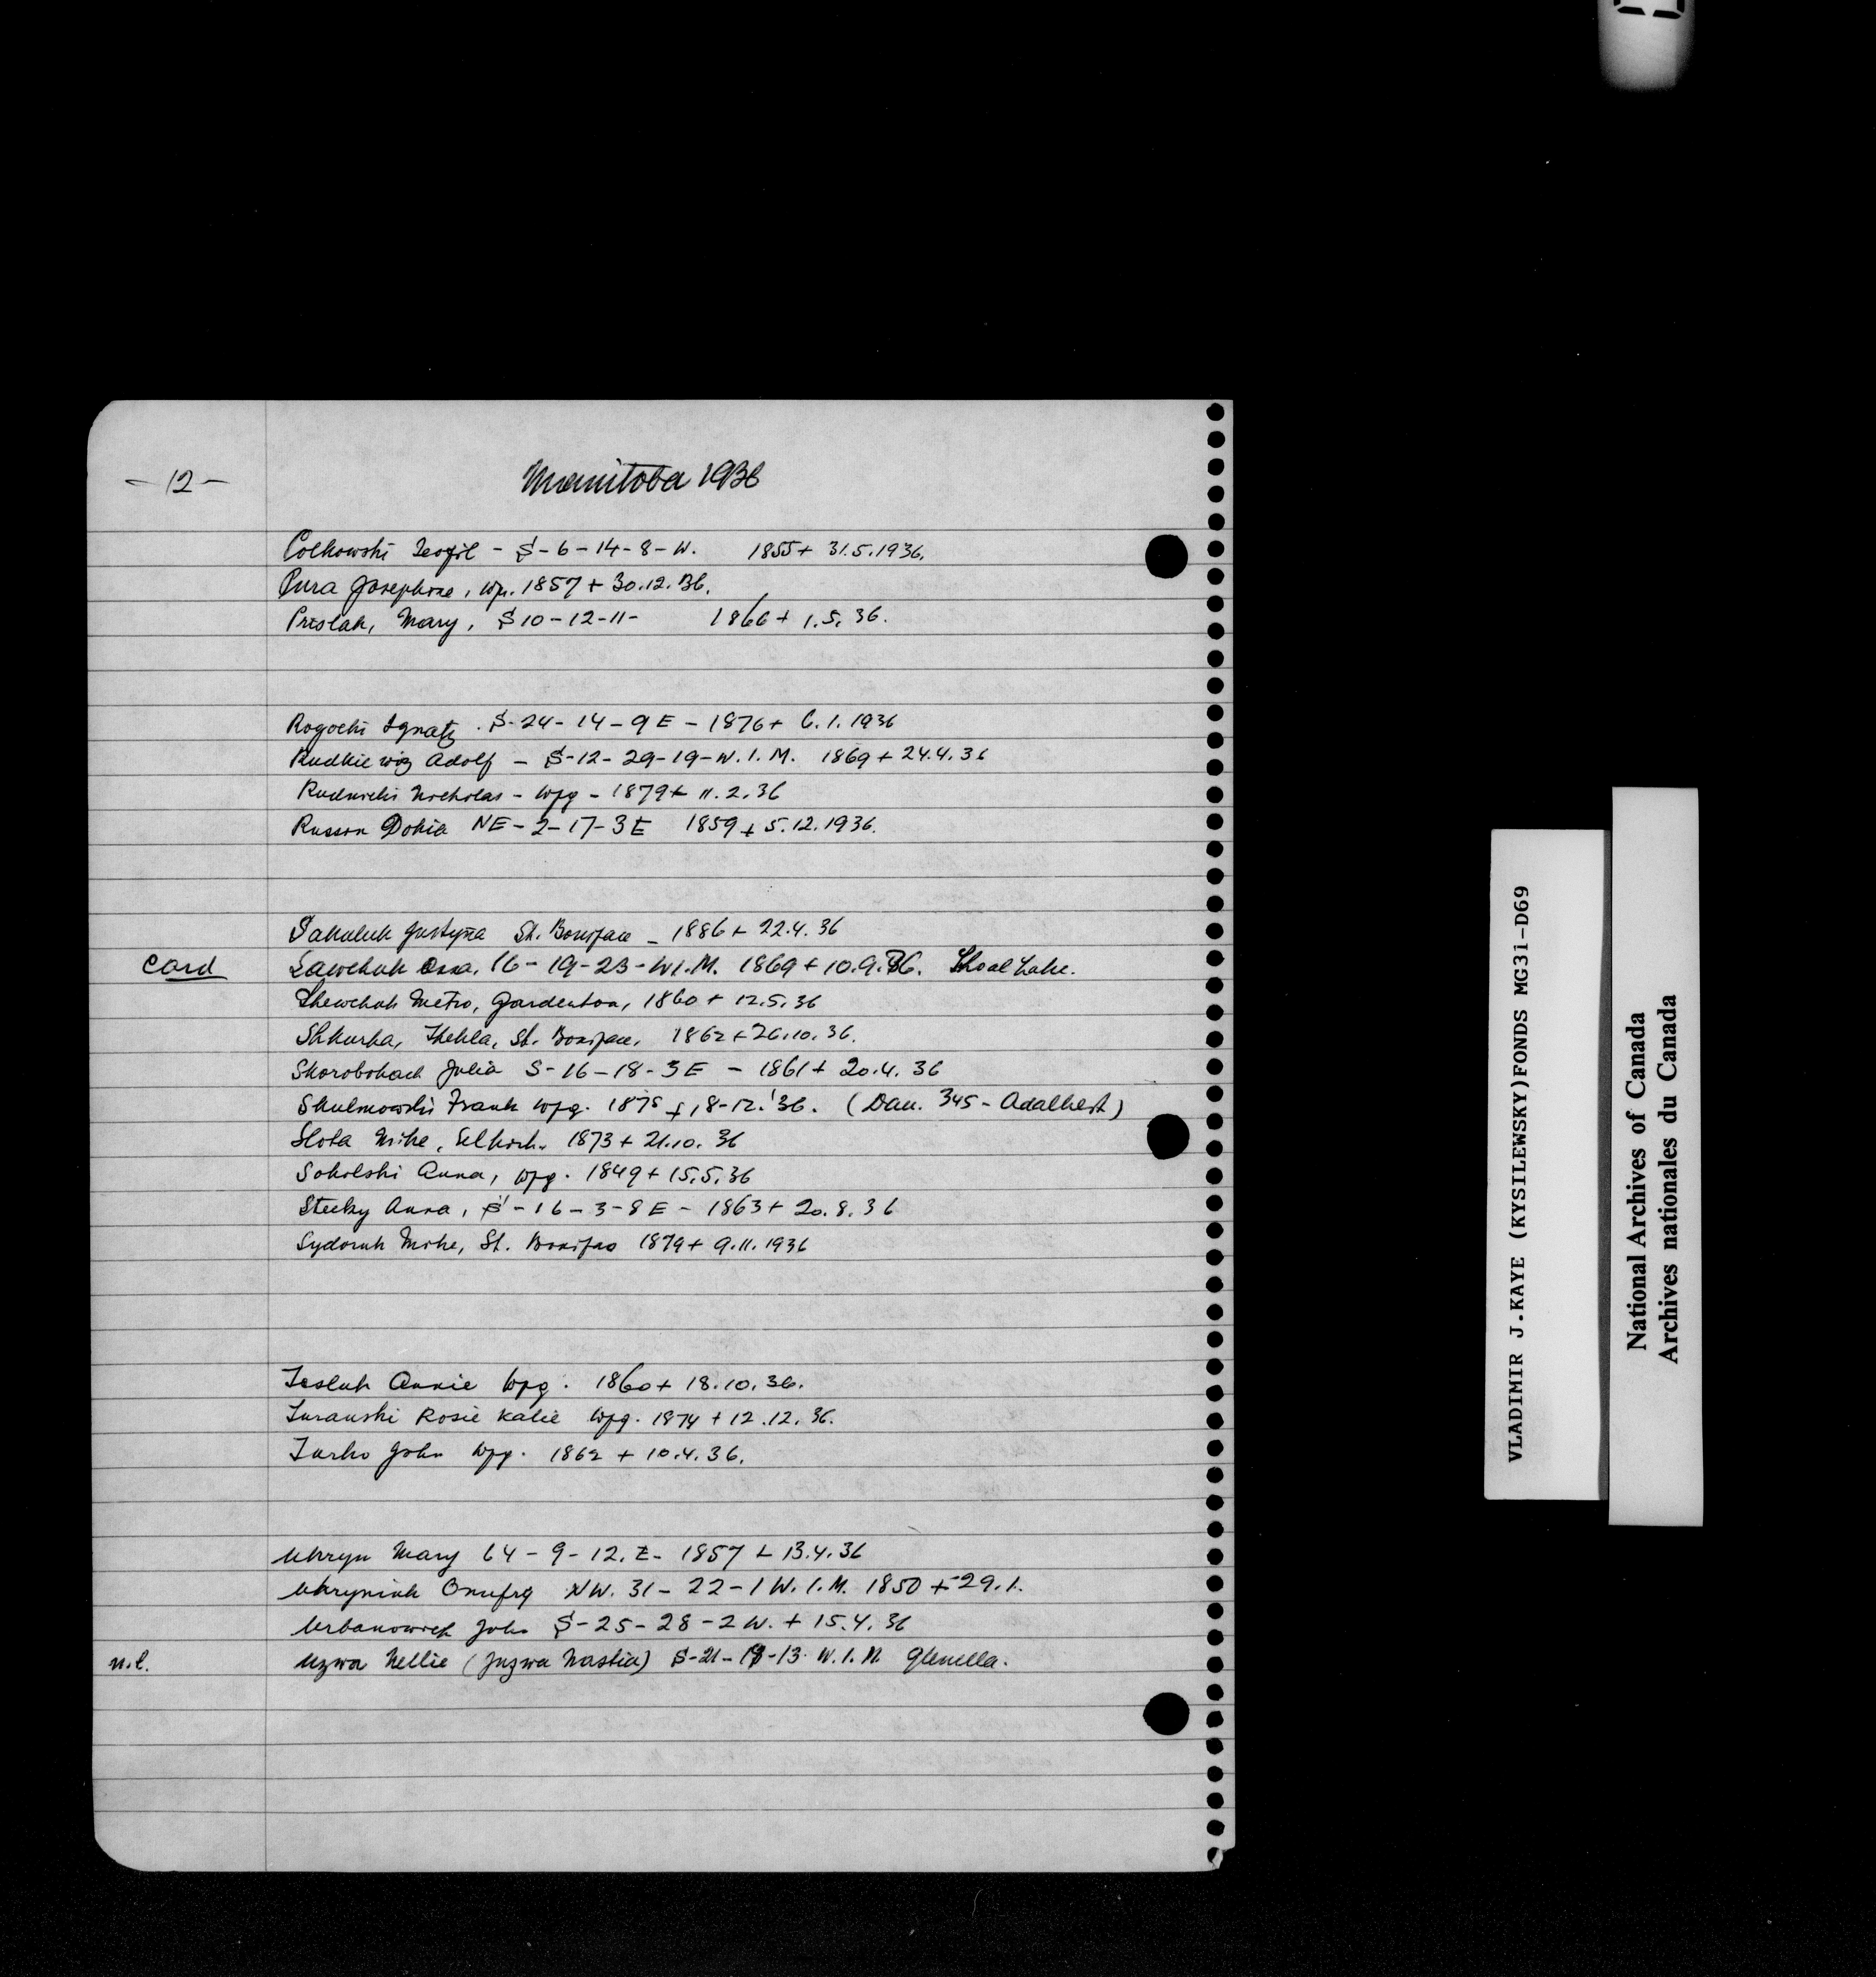 - 12 -
Manitoba 1936
Polkowski Teofil - S-6-14-8-W. 1855+ 31.5.1936.
Pura Josephine, Wp. 1857 + 30.12.36.
Prislak, Mary, S 10-12-11- 1866 + 1.5.36.
Rogocki Ignatz. S-24-14-9E - 1876+ 6.1.1936
Rudkiewicz Adolf - S-12-29-19-W.1.M. 1869 + 24.4.36
Rudnicki Nicholas - Wpg - 1879+ 11.2.36
Russon Dokia NE-2-17-3E 1859 + 5.12.1936.
Sakaluk Justyna St. Boniface - 1886 + 22.4.36
Card
Sawchuk Anna, 16-19-23-W1.M. 1869 + 10.9.36. Shoal Lake.
Shewchuk Metro, Gardenton, 1860 + 12.5.36
Shkurka, Thekla, St. Boniface, 1862 + 26.10.36.
Skorobohach Julia S-16-18-3E - 1861 + 20.4.36
Skulmowski Frank Wpg. 1875 + 18-12.'36. (Dau. 345 - Adalbert)
Slota Mike, Selkirk. 1873 + 21.10.36
Sokolski Anna, Wpg. 1849 + 15.5.36
Stecky Anna, S-16-3-8E - 1863 + 20.8.36
Sydoruk Mike, St. Boniface 1879 + 9.11.1936
Tesluk Annie Wpg. 1860 + 18.10.36.
Turanski Rosie Katie Wpg. 1874 + 12.12.36.
Turko John Wpg. 1862 + 10.4.36.
Uhryn Mary 64-9-12.E- 1857 + 13.4.36
Uhryniuk Onufry NW. 31-22-1 W.1.M. 1850 + 29.1.
Urbanowich John S-25-28-2W. + 15.4.36
n.l.
Uzwa Nellie (Juzwa Nastia) S-21-18-13 W.1.M. Glenella.
VLADIMIR J.KAYE (KYSILEWSKY)FONDS MG31-D69
National Archives of Canada
Archives nationales du Canada